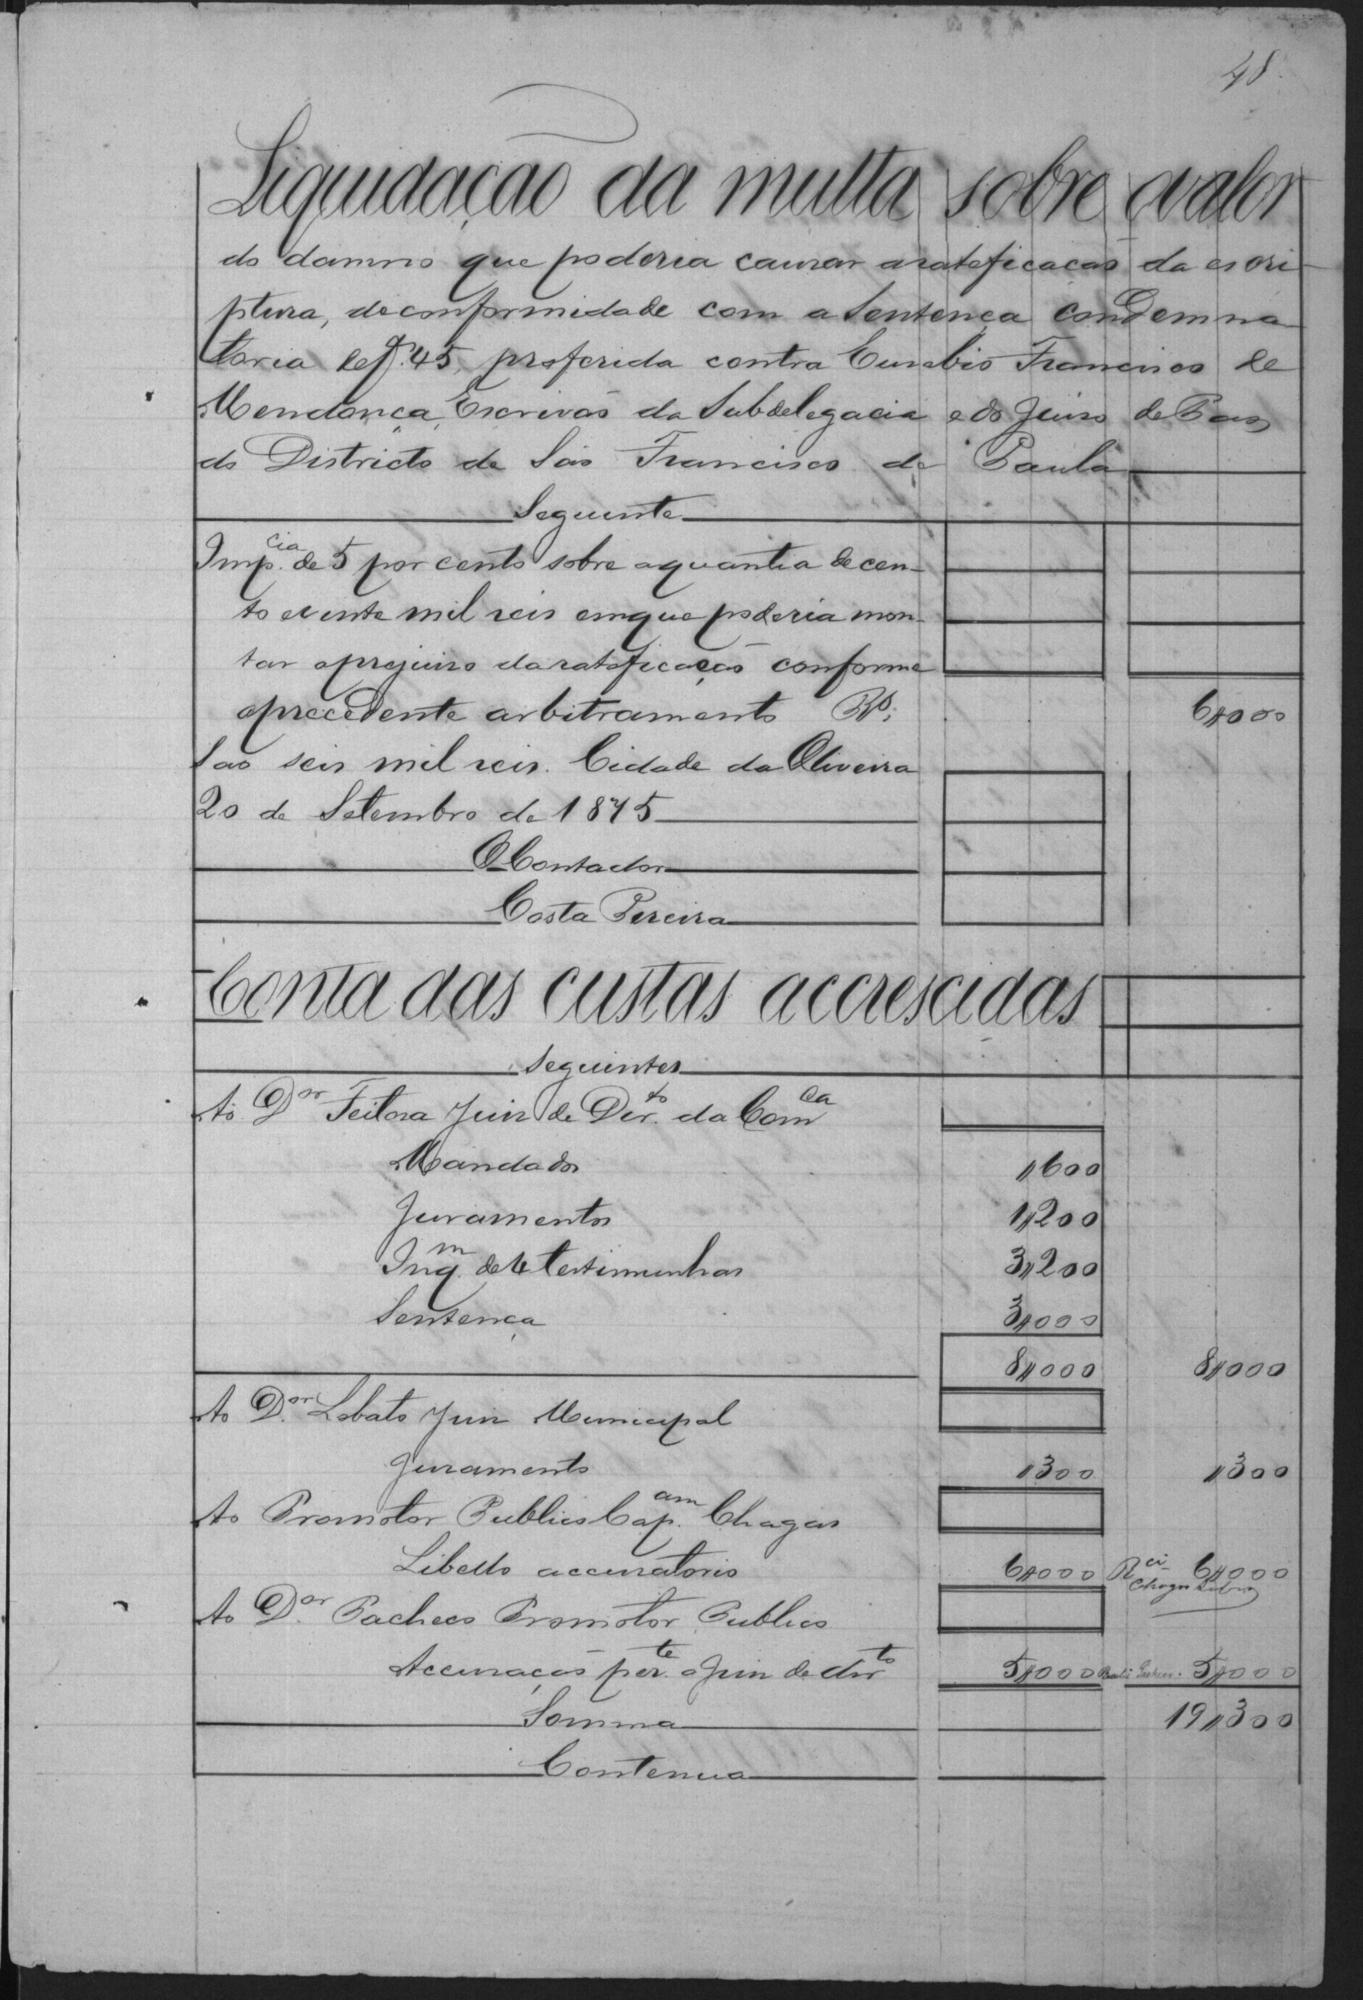 48
Liquidação da multa sobre o valor
do damno que poderia causar a ratificação da escri-
ptura, de conformidade com a Sentença condemna
toria de f. 45, proferida contra Eusebio Francisco de
Mendonça, Escrivão da Subdelegacia e do Juizo de Paz
do Districto de São Francisco de Paula
Seguinte
Imp.cia de 5 por cento sobre a quantia de cen-
to e vinte mil reis em que poderia mon-
tar o prejuizo da ratificação conforme
o precedente arbitramento Rs; 6〃000
São seis mil reis. Cidade da Oliveira
20 de Setembro de 1875
O Contador
Costa Pereira
Conta das custas accrescidas
Seguintes
Ao Dor Feitosa Juiz de Dir.to da Comca
Mandados 〃600
Juramentos 1〃200
Inqm de testimunhas 3〃200
Sentença 3〃000
8〃000 8〃000
Ao D.or Lobato Juiz Municipal
Juramento 〃300 〃300
Ao Promotor Publico Cap.am Chagas
Libello accusatorio 6〃000 Rci 6〃000
Chagas
Ao D.or Pacheco Promotor Publico
Accusação per.te o Juiz de dirto 5〃000 5〃000
Somma 19〃300
Contenua